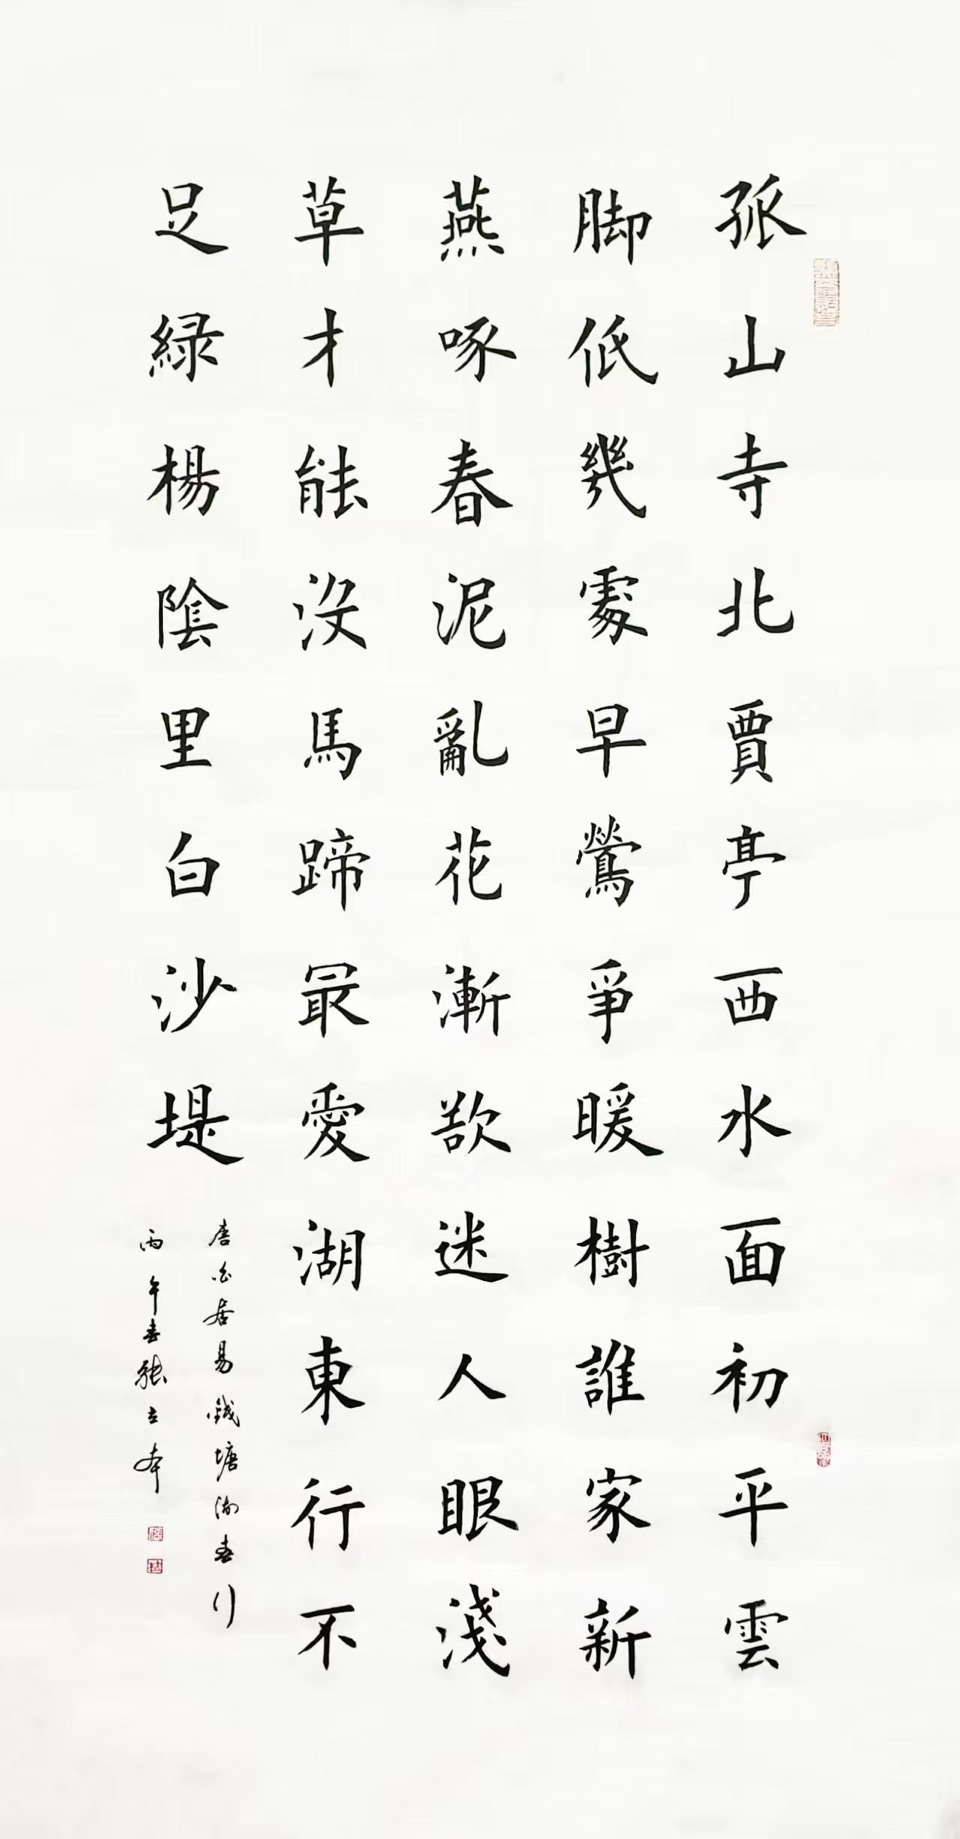 孤山寺北賈亭西水面初平雲
脚低幾處早鶯爭暖樹誰家新
燕啄春泥亂花漸欲迷人眼淺
草才能沒馬蹄最愛湖東行不
足綠楊陰里白沙堤
唐白居易錢塘湖春行
丙午春張立本